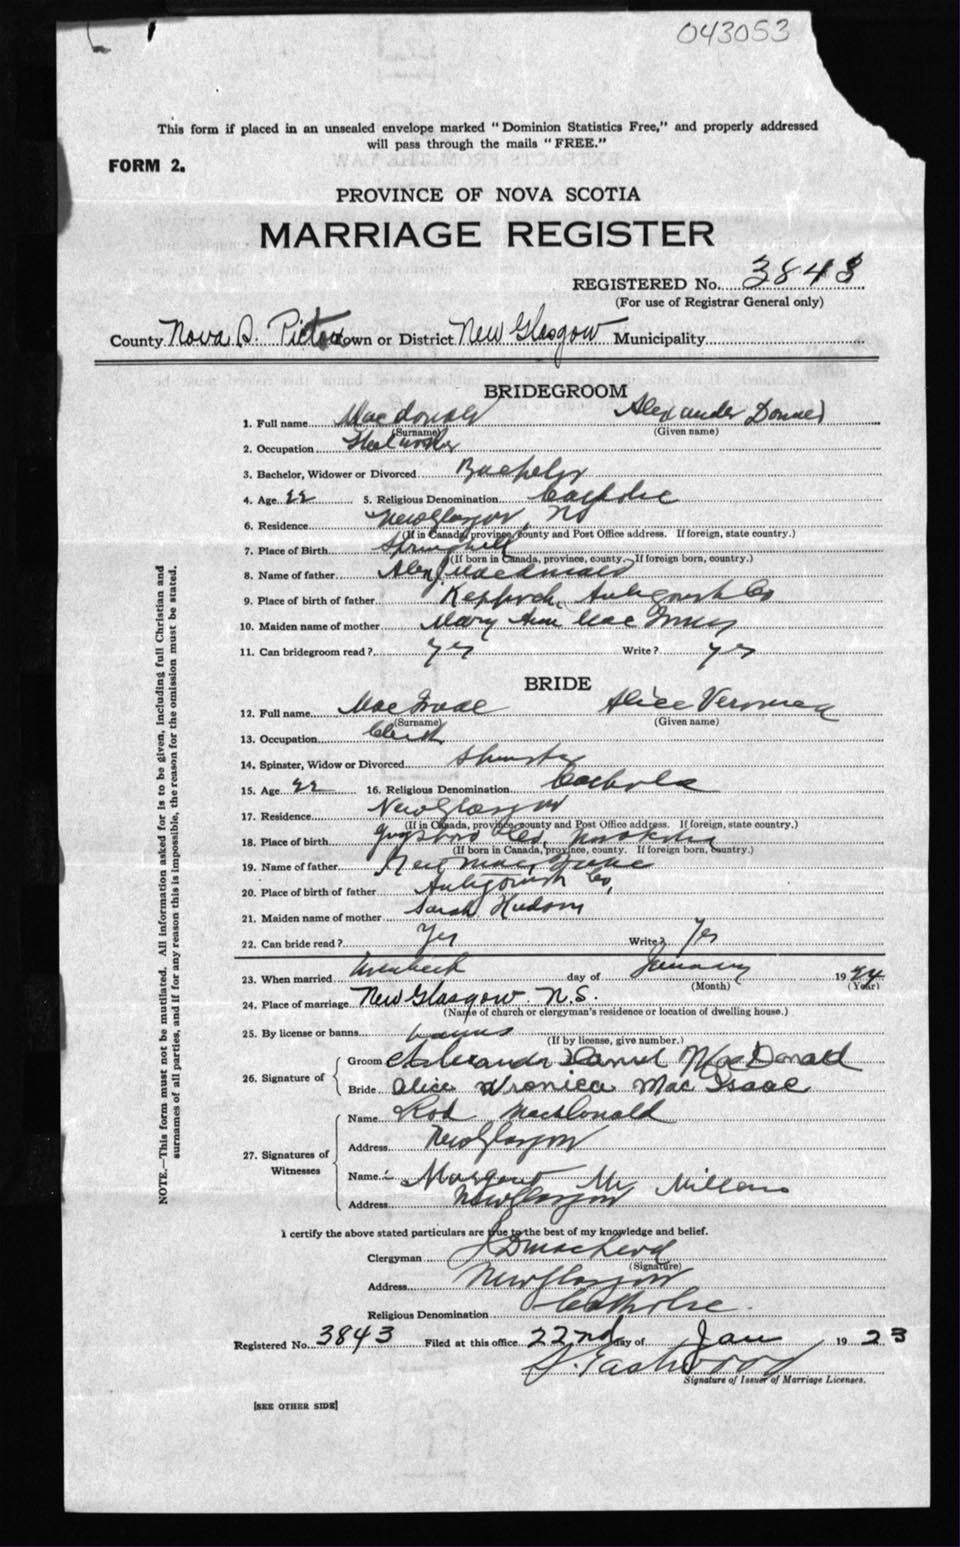 043053
This form if placed in an unsealed envelope marked "Dominion Statistics Free," and properly addressed
will pass through the mails "FREE."
FORM 2.
PROVINCE OF NOVA SCOTIA
MARRIAGE REGISTER
REGISTERED No. 3843
(For use of Registrar General only)
County Nova S. Pictou Town or District New Glasgow Municipality
BRIDEGROOM
1. Full name Macdonald Alexander Daniel
(Surname) (Given name)
2. Occupation
3. Bachelor, Widower or Divorced Bachelor
4. Age 22 5. Religious Denomination Catholic
6. Residence New Glasgow, NS
(If in Canada, province, county and Post Office address. If foreign, state country.)
7. Place of Birth Springhill
(If born in Canada, province, county. If foreign born, county.)
8. Name of father Alex MacDonald
9. Place of birth of father Keppoch, Antigonish Co
10. Maiden name of mother Mary Ann Mac Innis
11. Can bridegroom read? Yes Write? Yes
BRIDE
12. Full name MacIsaac Alice Veronica
(Surname) (Given name)
13. Occupation Clerk
14. Spinster, Widow or Divorced Spinster
15. Age 22 16. Religious Denomination Catholic
17. Residence New Glasgow
(If in Canada, province, county and Post Office address. If foreign, state country.)
18. Place of birth Guysboro Co. Nova Scotia
(If born in Canada, province, county. If foreign born, country.)
19. Name of father Neil MacIsaac
20. Place of birth of father Antigonish Co,
21. Maiden name of mother Sarah Hudson
22. Can bride read? Yes Write? Yes
23. When married day of January 1924
(Month) (Year)
24. Place of marriage New Glasgow. N.S.
(Name of church or clergyman's residence or location of dwelling house.)
25. By license or banns banns
(If by license, give number.)
26. Signature of Groom Alexander Daniel MacDonald
Bride Alice Veronica Mac Isaac
27. Signatures of Witnesses Name Rod MacDonald
Address New Glasgow
Name Margaret Mc Millan
Address New Glasgow
I certify the above stated particulars are true to the best of my knowledge and belief.
Clergyman J D MacLeod
(Signature)
Address New Glasgow
Religious Denomination Catholic.
Registered No. 3843 Filed at this office 22nd day of Jan 1923
Eastwood
Signature of Issuer of Marriage Licenses.
[SEE OTHER SIDE]
NOTE.—This form must not be mutilated. All information asked for is to be given, including full Christian and
surnames of all parties, and if for any reason this is impossible, the reason for the omission must be stated.